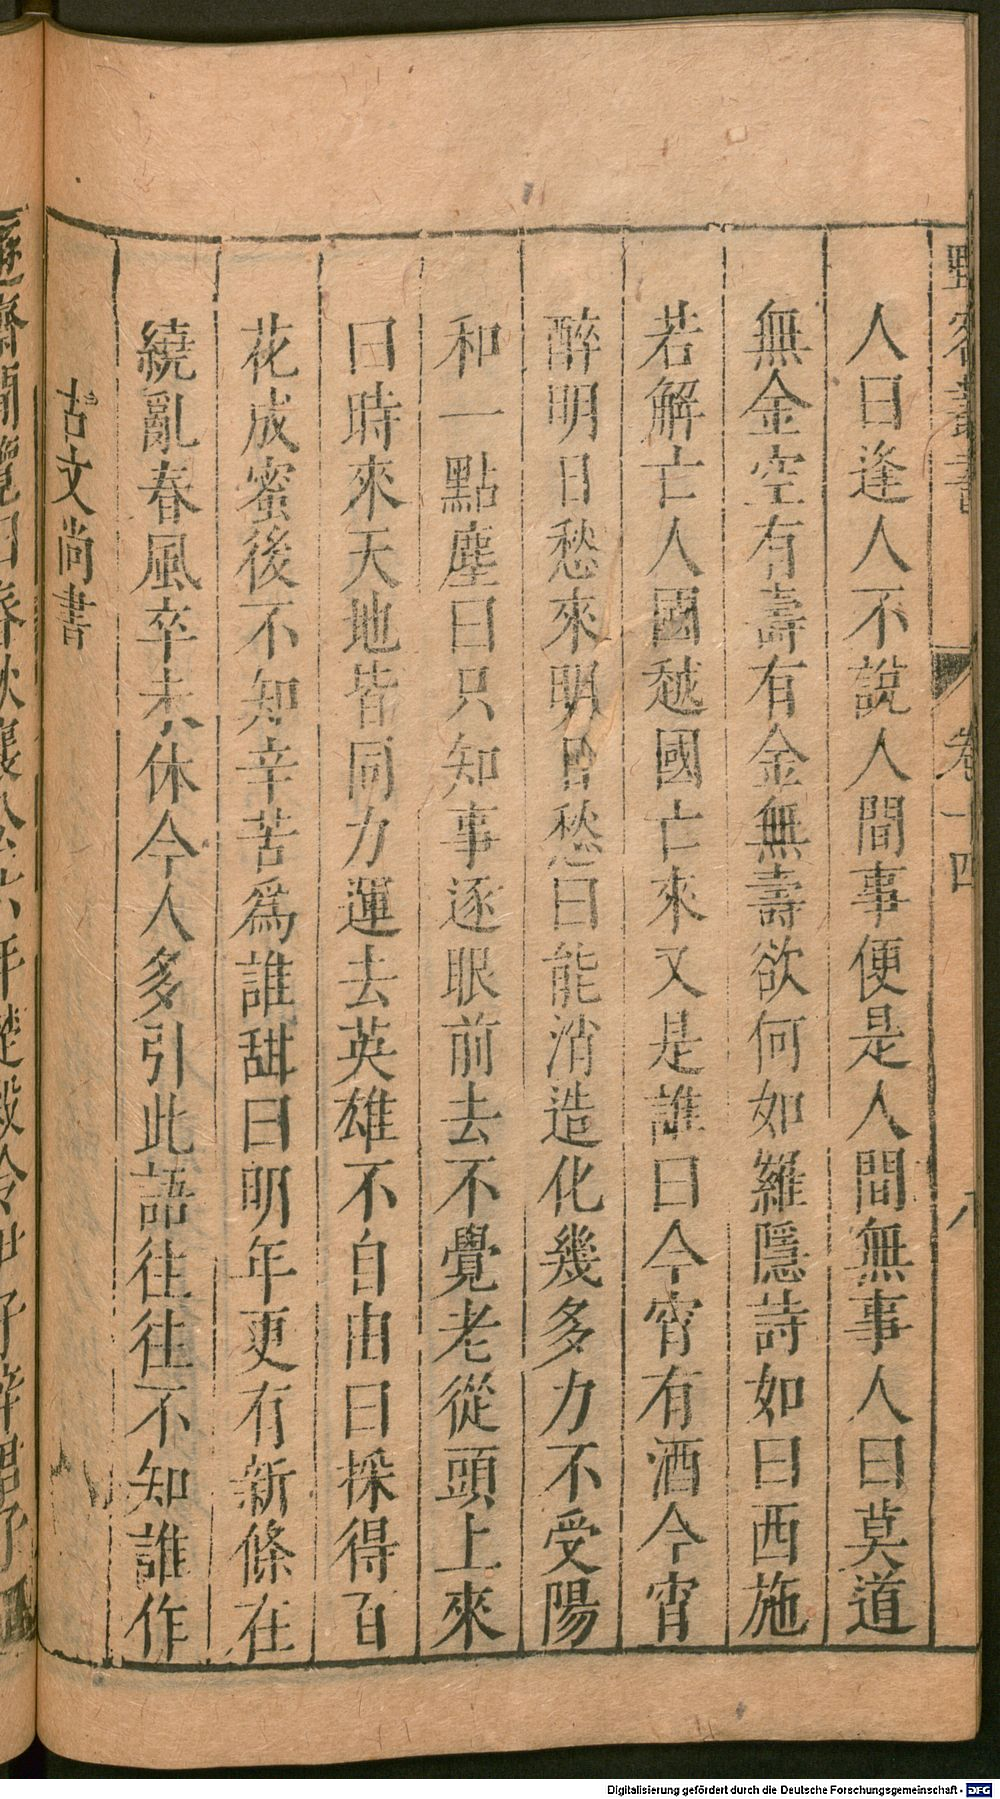 野客叢書 卷十四 八
人曰逢人不說人間事便是人間無事人曰莫道
無金空有壽有金無壽欲何如羅隱詩如曰西施
若解亡人國越國亡來又是誰曰今宵有酒今宵
醉明日愁來明日愁曰能消造化幾多力不受陽
和一點塵曰只知事逐眼前去不覺老從頭上來
曰時來天地皆同力運去英雄不自由曰採得百
花成蜜後不知辛苦爲誰甜曰明年更有新條在
繞亂春風卒未休今人多引此語往往不知誰作
古文尚書
遯齋閒覽曰春秋襄公
年楚殺令尹子辛
Digitalisierung gefördert durch die Deutsche Forschungsgemeinschaft - DFG